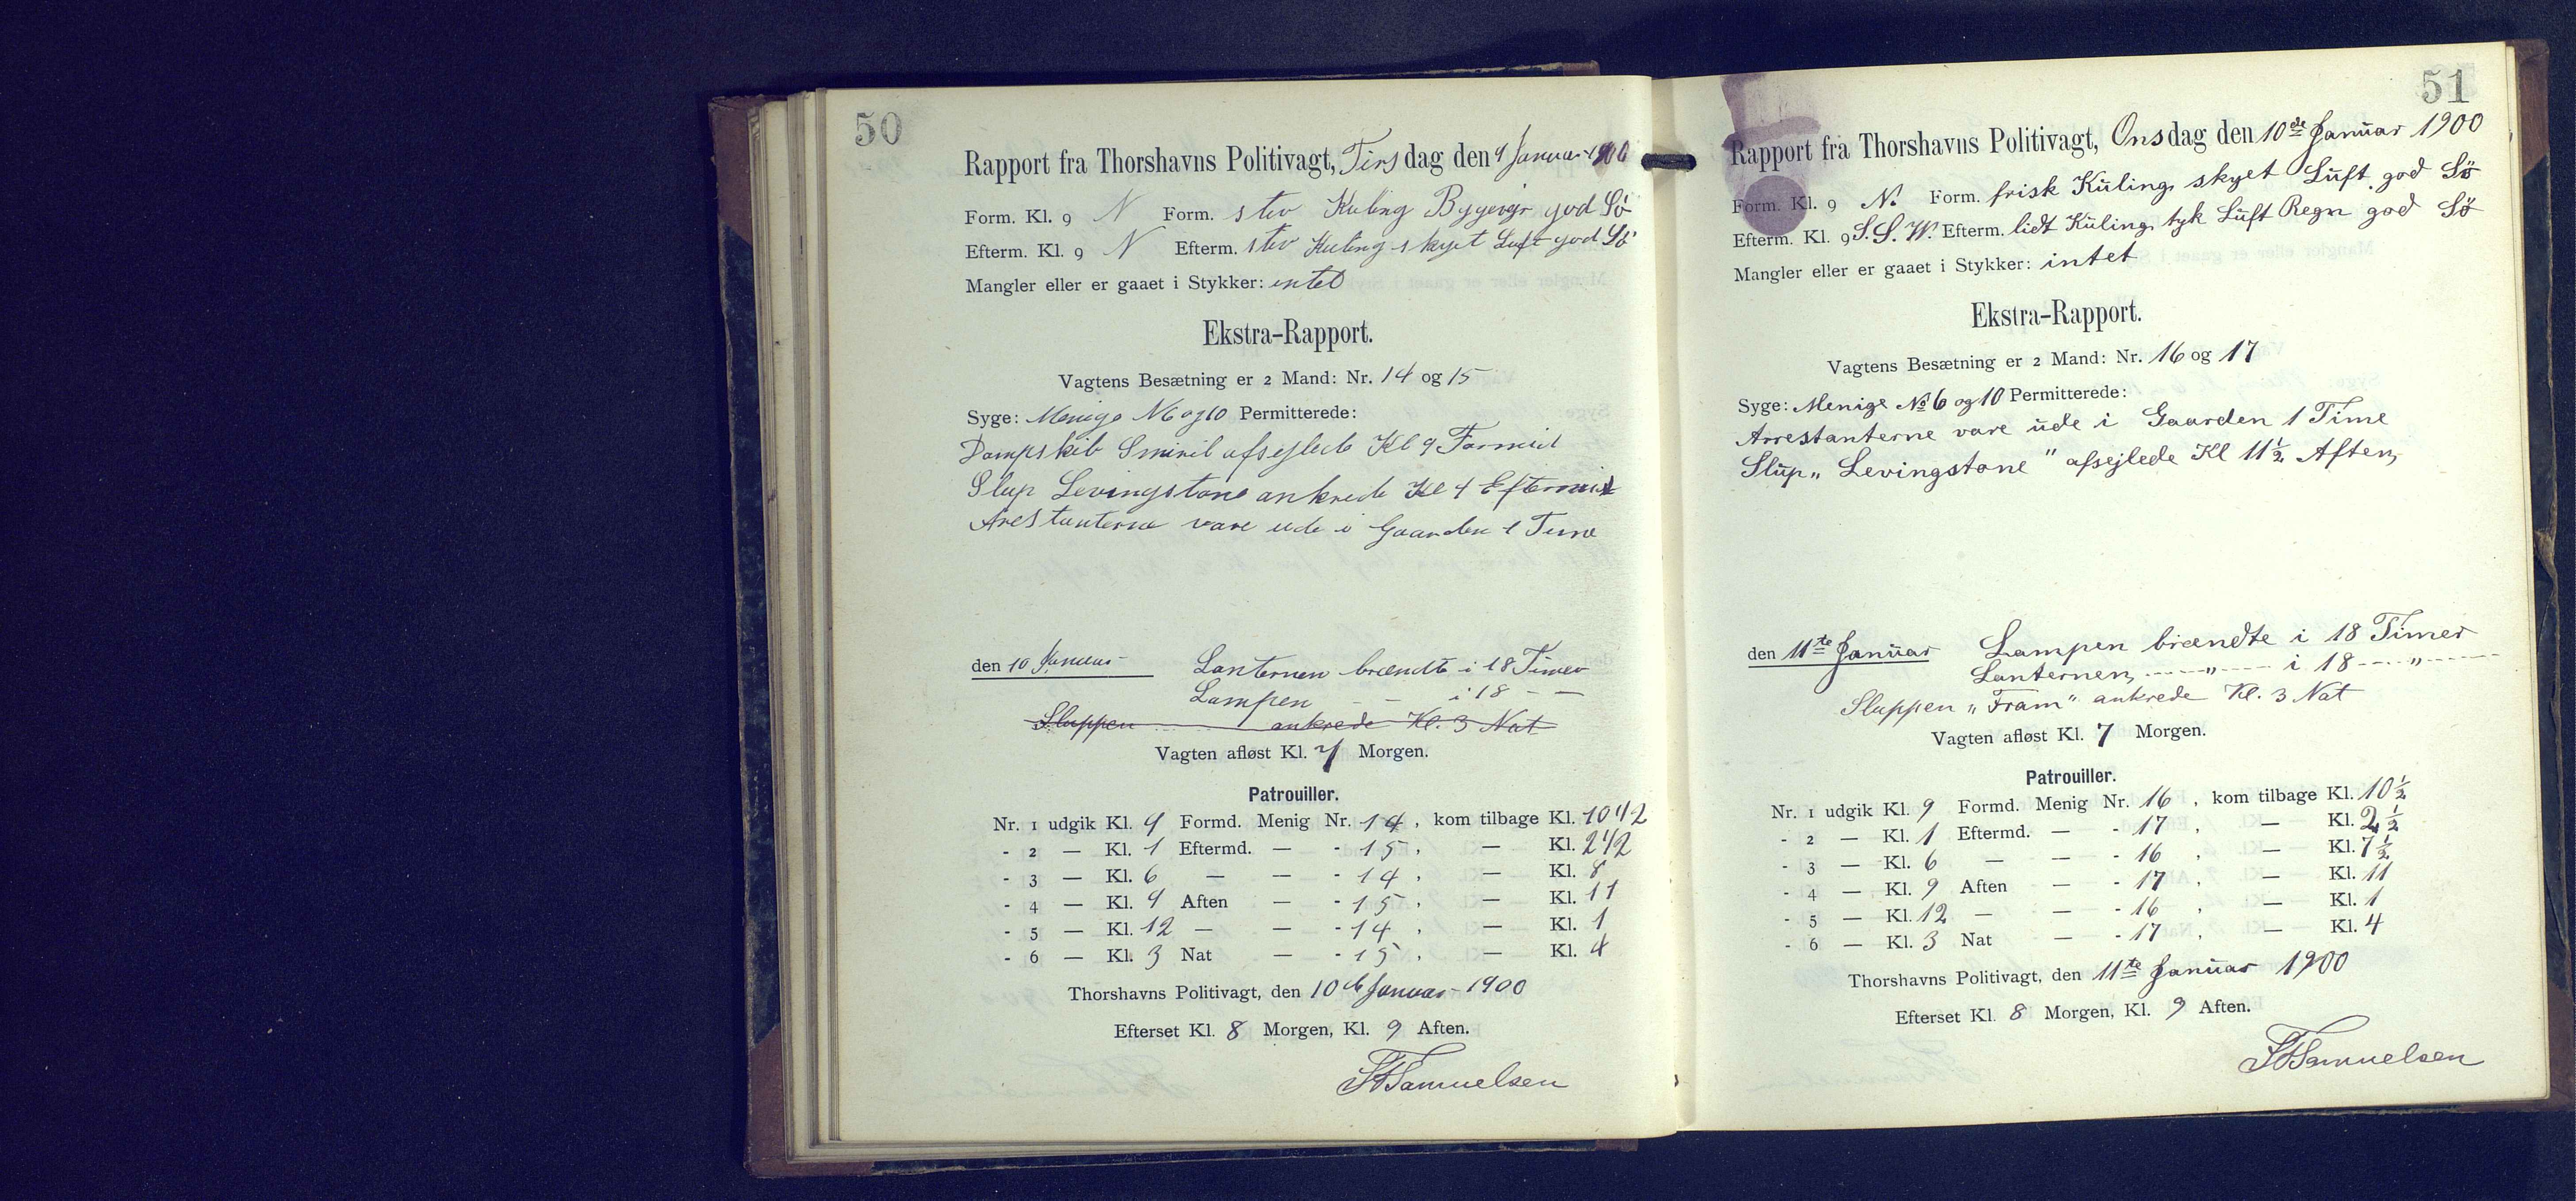 50
Rapport fra Thorshavns Politivagt, Tirsdag den 9 Januar 1900
Form. Kl. 9 N Form. stiv Kuling Bygevejr god Sö
Efterm. Kl. 9 N Efterm. stiv Kuling skyet Luft god Sö
Mangler eller er gaaet i Stykker: intet
Ekstra-Rapport.
Vagtens Besætning er 2 Mand: Nr. 14 og 15
Syge: Menige N 6 og 10 Permitterede:
Dampskib Smiril afsejlede Kl 9 Formid
Slup Levingstone ankrede Kl 4 Eftermid
Arestanterne vare ude i Gaarden 1 Time
den 10 Januar Lanternen brændte i 18 Timer
Lampen — — i 18 — —
Sluppen ankrede Kl. 3 Nat
Vagten afløst Kl. 7 Morgen.
Patrouiller.
Nr. 1 udgik Kl. 9 Formd. Menig Nr. 14, kom tilbage Kl. 10 1/2
- 2 — Kl. 1 Eftermd. — - 15, — Kl. 2 1/2
- 3 — Kl. 6 — — - 14, — Kl. 8
- 4 — Kl. 9 Aften — - 15, — Kl. 11
- 5 — Kl. 12 — — - 14, — Kl. 1
- 6 — Kl. 3 Nat — - 15, — Kl. 4
Thorshavns Politivagt, den 10 de Januar 1900
Efterset Kl. 8 Morgen, Kl. 9 Aften.
Samuelsen
51
Rapport fra Thorshavns Politivagt, Onsdag den 10de Januar 1900
Form. Kl. 9 N. Form. frisk Kuling skyet Luft god Sö
Efterm. Kl. 9 S.S.W. Efterm. lidt Kuling tyk Luft Regn god Sö
Mangler eller er gaaet i Stykker: intet
Ekstra-Rapport.
Vagtens Besætning er 2 Mand: Nr. 16 og 17
Syge: Menige No 6 og 10 Permitterede:
Arrestanterne vare ude i Gaarden 1 Time
Slup „Levingstone" afsejlede Kl 11 1/2 Aften
den 11te Januar Lampen brændte i 18 Timer
Lanternen — " — i 18 — " —
Sluppen „Fram" ankrede Kl. 3 Nat
Vagten afløst Kl. 7 Morgen.
Patrouiller.
Nr. 1 udgik Kl. 9 Formd. Menig Nr. 16, kom tilbage Kl. 10 1/2
- 2 — Kl. 1 Eftermd. — - 17, — Kl. 2 1/2
- 3 — Kl. 6 — — - 16, — Kl. 7 1/2
- 4 — Kl. 9 Aften — - 17, — Kl. 11
- 5 — Kl. 12 — — - 16, — Kl. 1
- 6 — Kl. 3 Nat — - 17, — Kl. 4
Thorshavns Politivagt, den 11te Januar 1900
Efterset Kl. 8 Morgen, Kl. 9 Aften.
Samuelsen